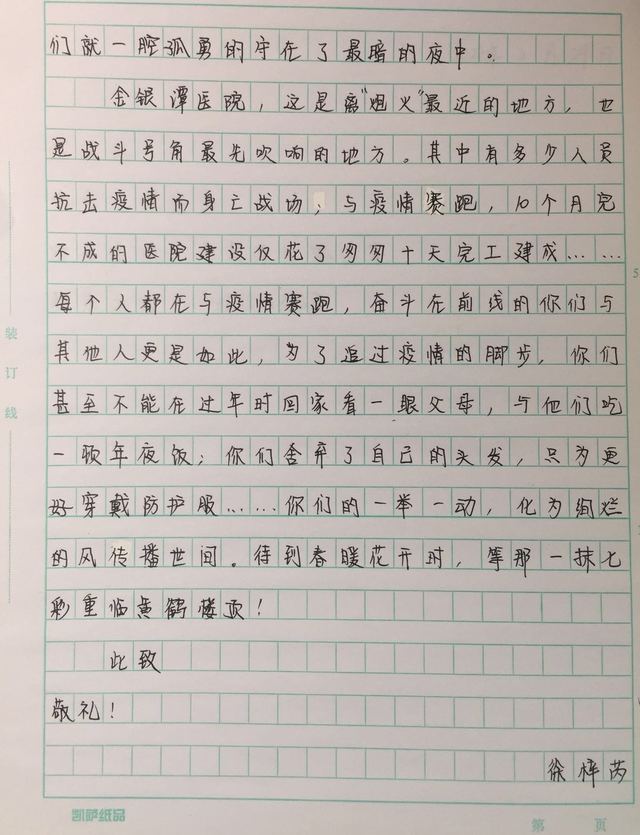 们就一腔孤勇的守在了最暗的夜中。
金银潭医院，这是离“烟火”最近的地方，也
是战斗号角最先吹响的地方。其中有多少人员
抗击疫情而身亡战场；与疫情赛跑，10个月完
不成的医院建设仅花了匆匆十天完工建成……
每个人都在与疫情赛跑，奋斗在前线的你们与
其他人更是如此，为了追过疫情的脚步，你们
甚至不能在过年时回家看一眼父母，与他们吃
一顿年夜饭；你们舍弃了自己的头发，只为更
好穿戴防护服……你们的一举一动，化为绚烂
的风传播世间。待到春暖花开时，等那一抹七
彩重临黄鹤楼顶！
此致
敬礼！
徐梓芮
装订线
5
凯萨纸品
第 页